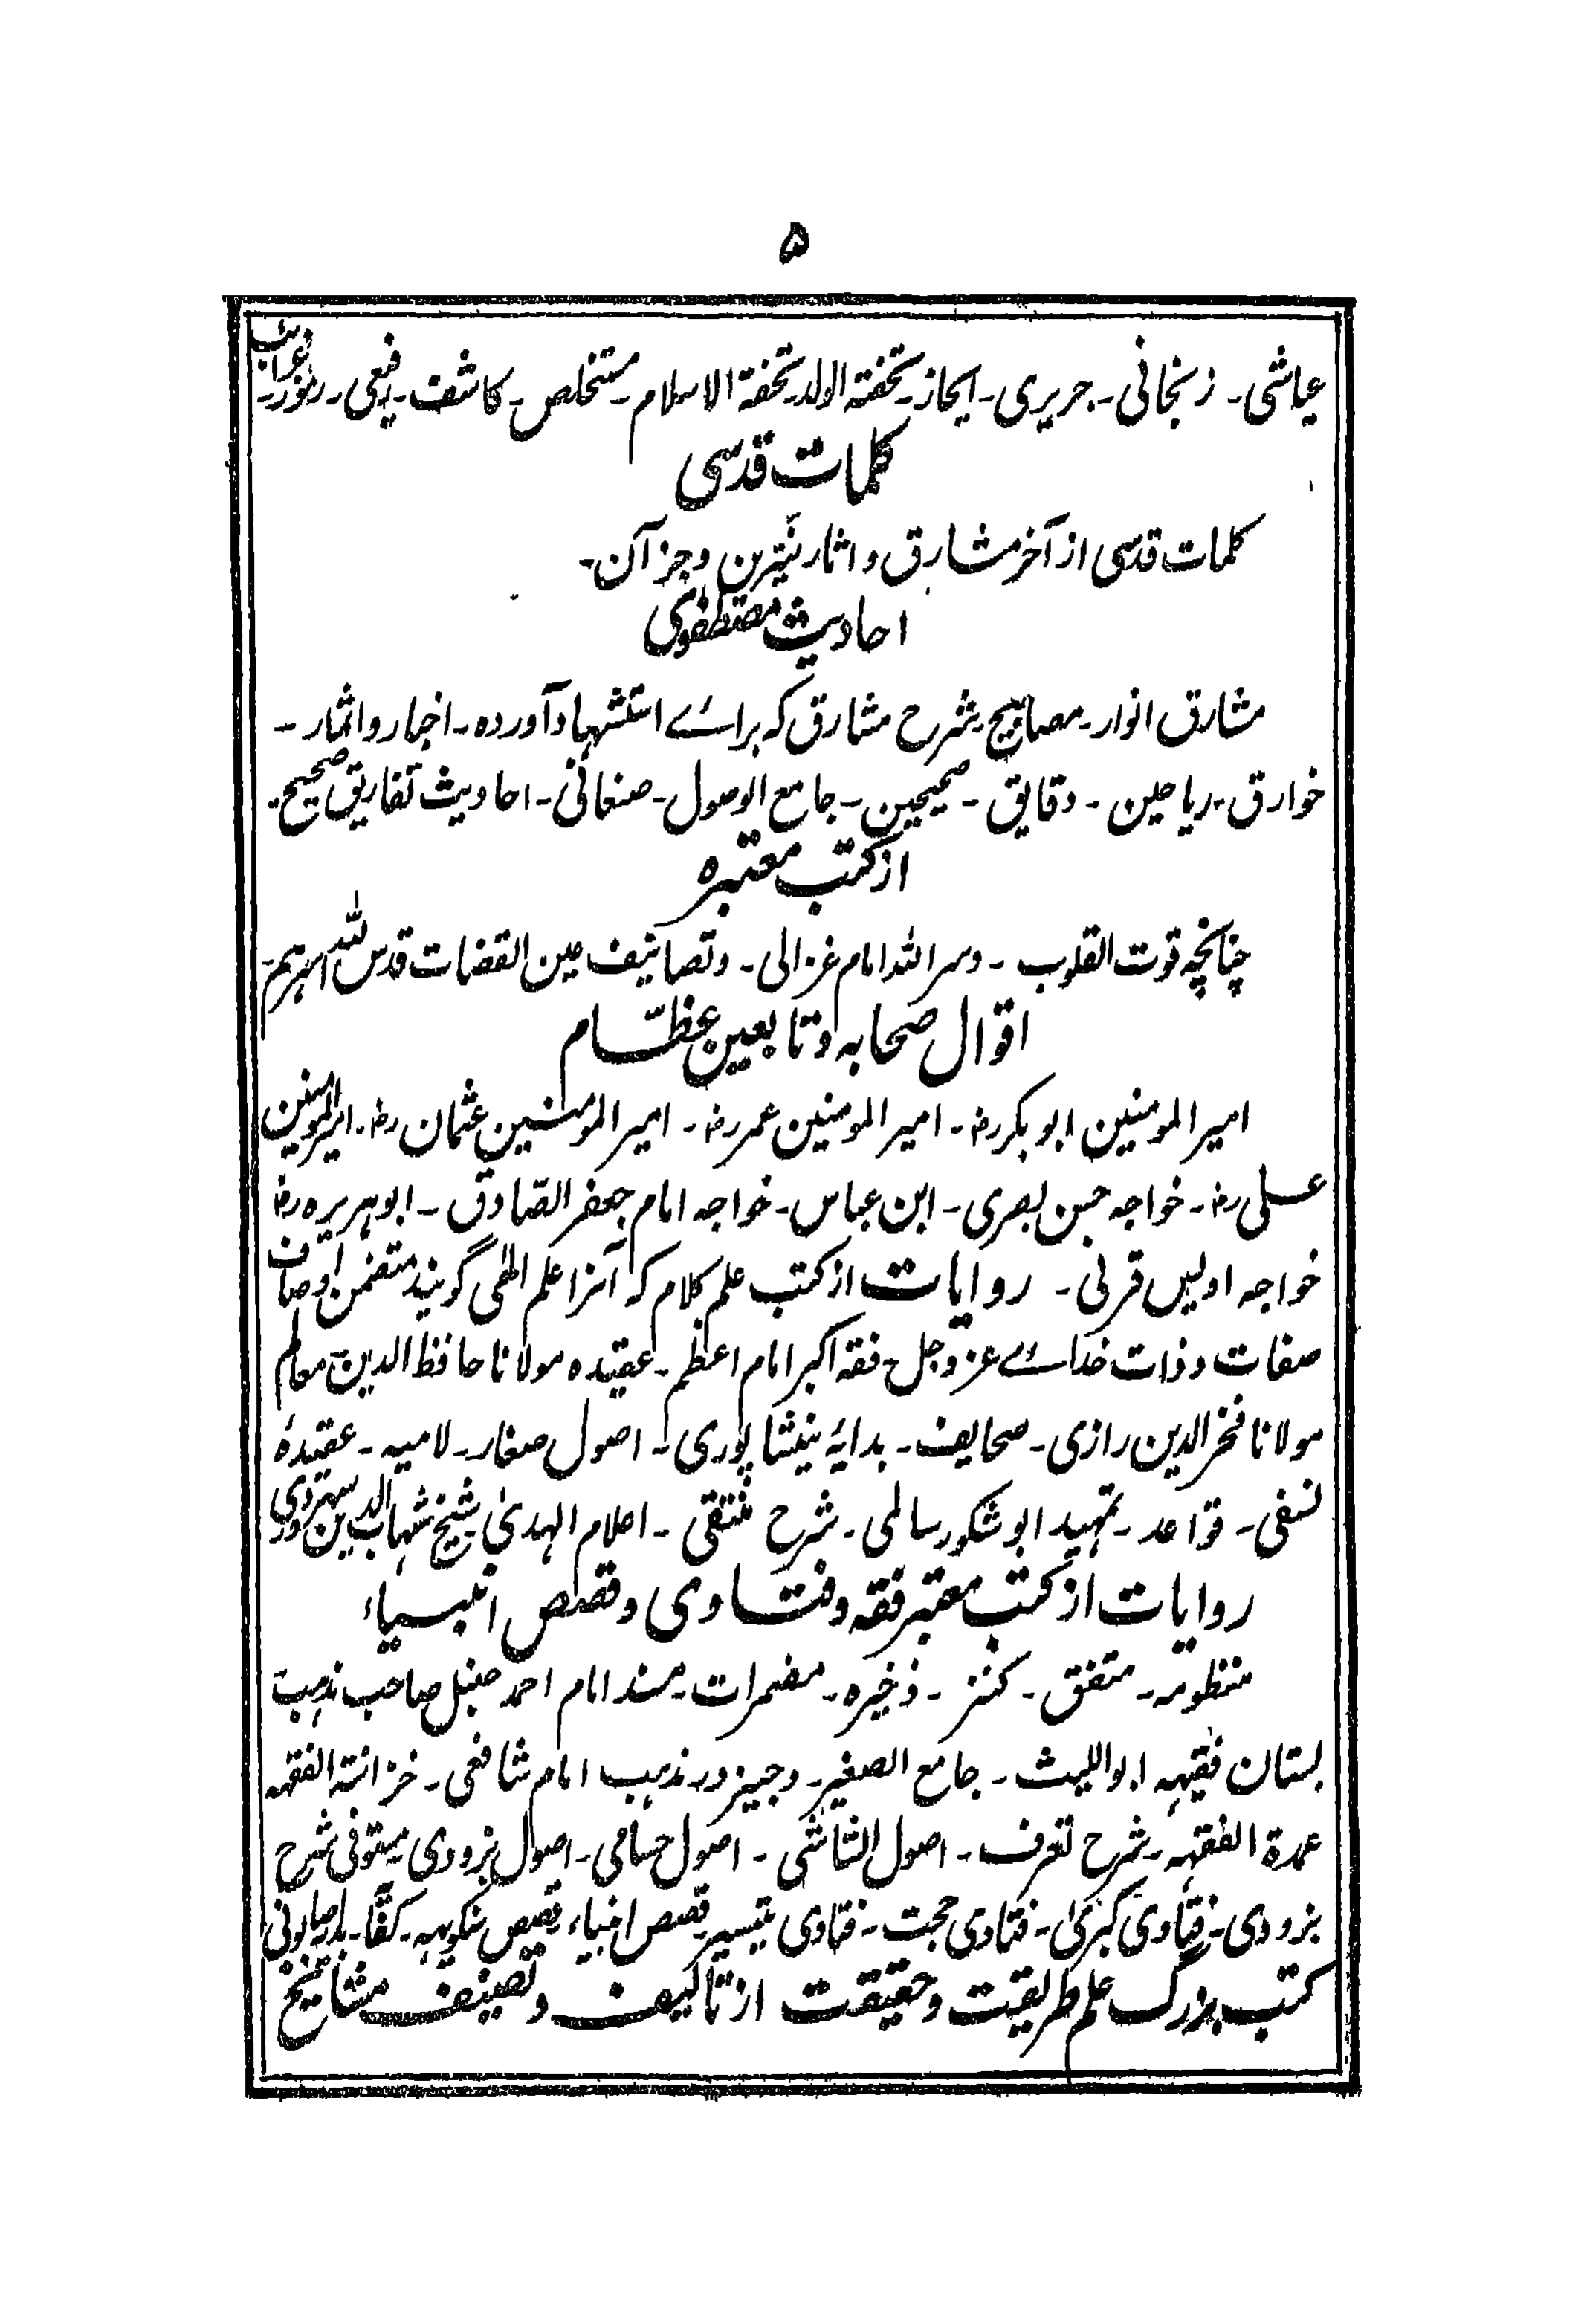 ۵
عیاشی۔ زنجانی۔ جریری۔ ایجاز۔ تحفتہ الولد۔ تحفۃ الاسلام۔ مستخلص۔ کاشف۔ رموز۔ غرائب
کلمات قدسی
کلمات قدسی از آخر مشارق و اثار نیّرین و جز آن۔
احادیث مصطفوی
مشارق انوار۔ مصابیح۔ شرح مشارق کہ برائے استشہاد آوردہ۔ اخبار و اثمار۔
خوارق۔ ریاحین۔ دقایق۔ صحیحین۔ جامع الوصول۔ صنعانی۔ احادیث تفاریق صحیح۔
از کتب معتبرہ
چنانچہ قوت القلوب۔ و سر اللہ امام غزالی۔ و تصانیف عین القضات قدس اللہ اسرہم۔
اقوال صحابہ و تابعین عظّام
امیر المومنین ابوبکر رض۔ امیر المومنین عمر رض۔ امیر المومنین عثمان رض۔ امیر المومنین
علی رض۔ خواجہ حسن بصری۔ ابن عباس۔ خواجہ امام جعفر الصّادق۔ ابوہریرہ رض
خواجہ اویس قرنی۔ روایات از کتب علم کلام کہ آنرا علم الٰہی گویند متضمن اوصاف
صفات و ذات خدائے عز و جل۔ فقہ اکبر امام اعظم۔ عقیدہ مولانا حافظ الدین۔ معالم
مولانا فخر الدین رازی۔ صحایف۔ بدایۂ نیشاپوری۔ اصول صغار۔ لامیہ۔ عقیدۂ
نسفی۔ قواعد۔ تمہید ابو شکور سالمی۔ شرح منتقی۔ اعلام الہدیٰ شیخ شہاب الدین سہروردی
روایات از کتب معتبر فقہ و فتاوی و قصص انبیاء
منظومہ۔ متفق۔ کنز۔ ذخیرہ۔ مضمرات۔ مسند امام احمد حنبل صاحب مذہب
بستان فقیہہ ابواللیث۔ جامع الصغیر۔ وجیز در مذہب امام شافعی۔ خزانتہ الفقہہ
عمدۃ الفقہہ۔ شرح تعرف۔ اصول الشاشی۔ اصول حسامی۔ اصول بزودی۔ مستوفی شرح
بزودی۔ فتاوی کبریٰ۔ فتاوی حجت۔ فتاوی تیسیر۔ قصص انبیاء۔ قصص
کتب بزرگ علم طریقت و حقیقت از تالیف و تصنیف مشایخ